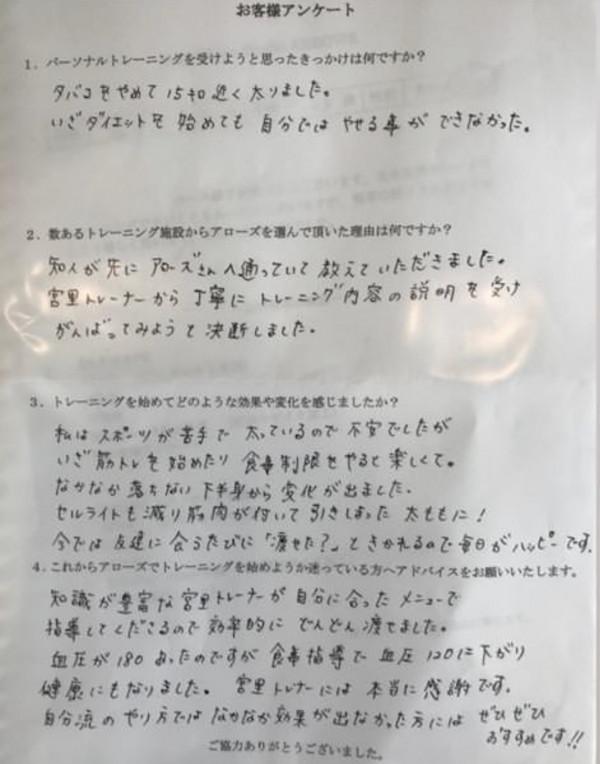 お客様アンケート
1．パーソナルトレーニングを受けようと思ったきっかけは何ですか？
タバコをやめて15キロ近く太りました。
いざダイエットを始めても自分ではやせる事ができなかった。
2．数あるトレーニング施設からアローズを選んで頂いた理由は何ですか？
知人が先にアローズさんへ通っていて教えていただきました。
宮里トレーナーから丁寧にトレーニング内容の説明を受け
がんばってみようと決断しました。
3．トレーニングを始めてどのような効果や変化を感じましたか？
私はスポーツが苦手で太っているので不安でしたが
いざ筋トレを始めたり食事制限をやると楽しくて。
なかなか落ちない下半身から変化が出ました。
セルライトも減り筋肉が付いて引きしまった太ももに！
今では友達に会うたびに「痩せた？」ときかれるので毎日がハッピーです。
4．これからアローズでトレーニングを始めようか迷っている方へアドバイスをお願いいたします。
知識が豊富な宮里トレーナーが自分に合ったメニューで
指導してくださるので効率的にどんどん痩せました。
血圧が180あったのですが食事指導で血圧120に下がり
健康にもなりました。宮里トレナーには本当に感謝です。
自分流のやり方ではなかなか効果が出なかった方にはぜひぜひ
おすすめです!!
ご協力ありがとうございました。